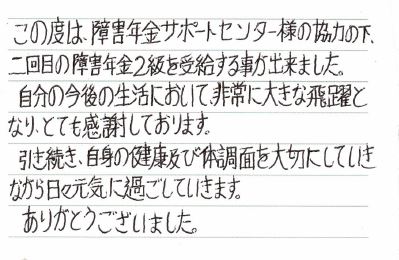 この度は、障害年金サポートセンター様の協力の下、
二回目の障害年金2級を受給する事が出来ました。
自分の今後の生活において、非常に大きな飛躍と
なり、とても感謝しております。
引き続き、自身の健康及び体調面を大切にしていき
ながら日々元気に過ごしていきます。
ありがとうございました。